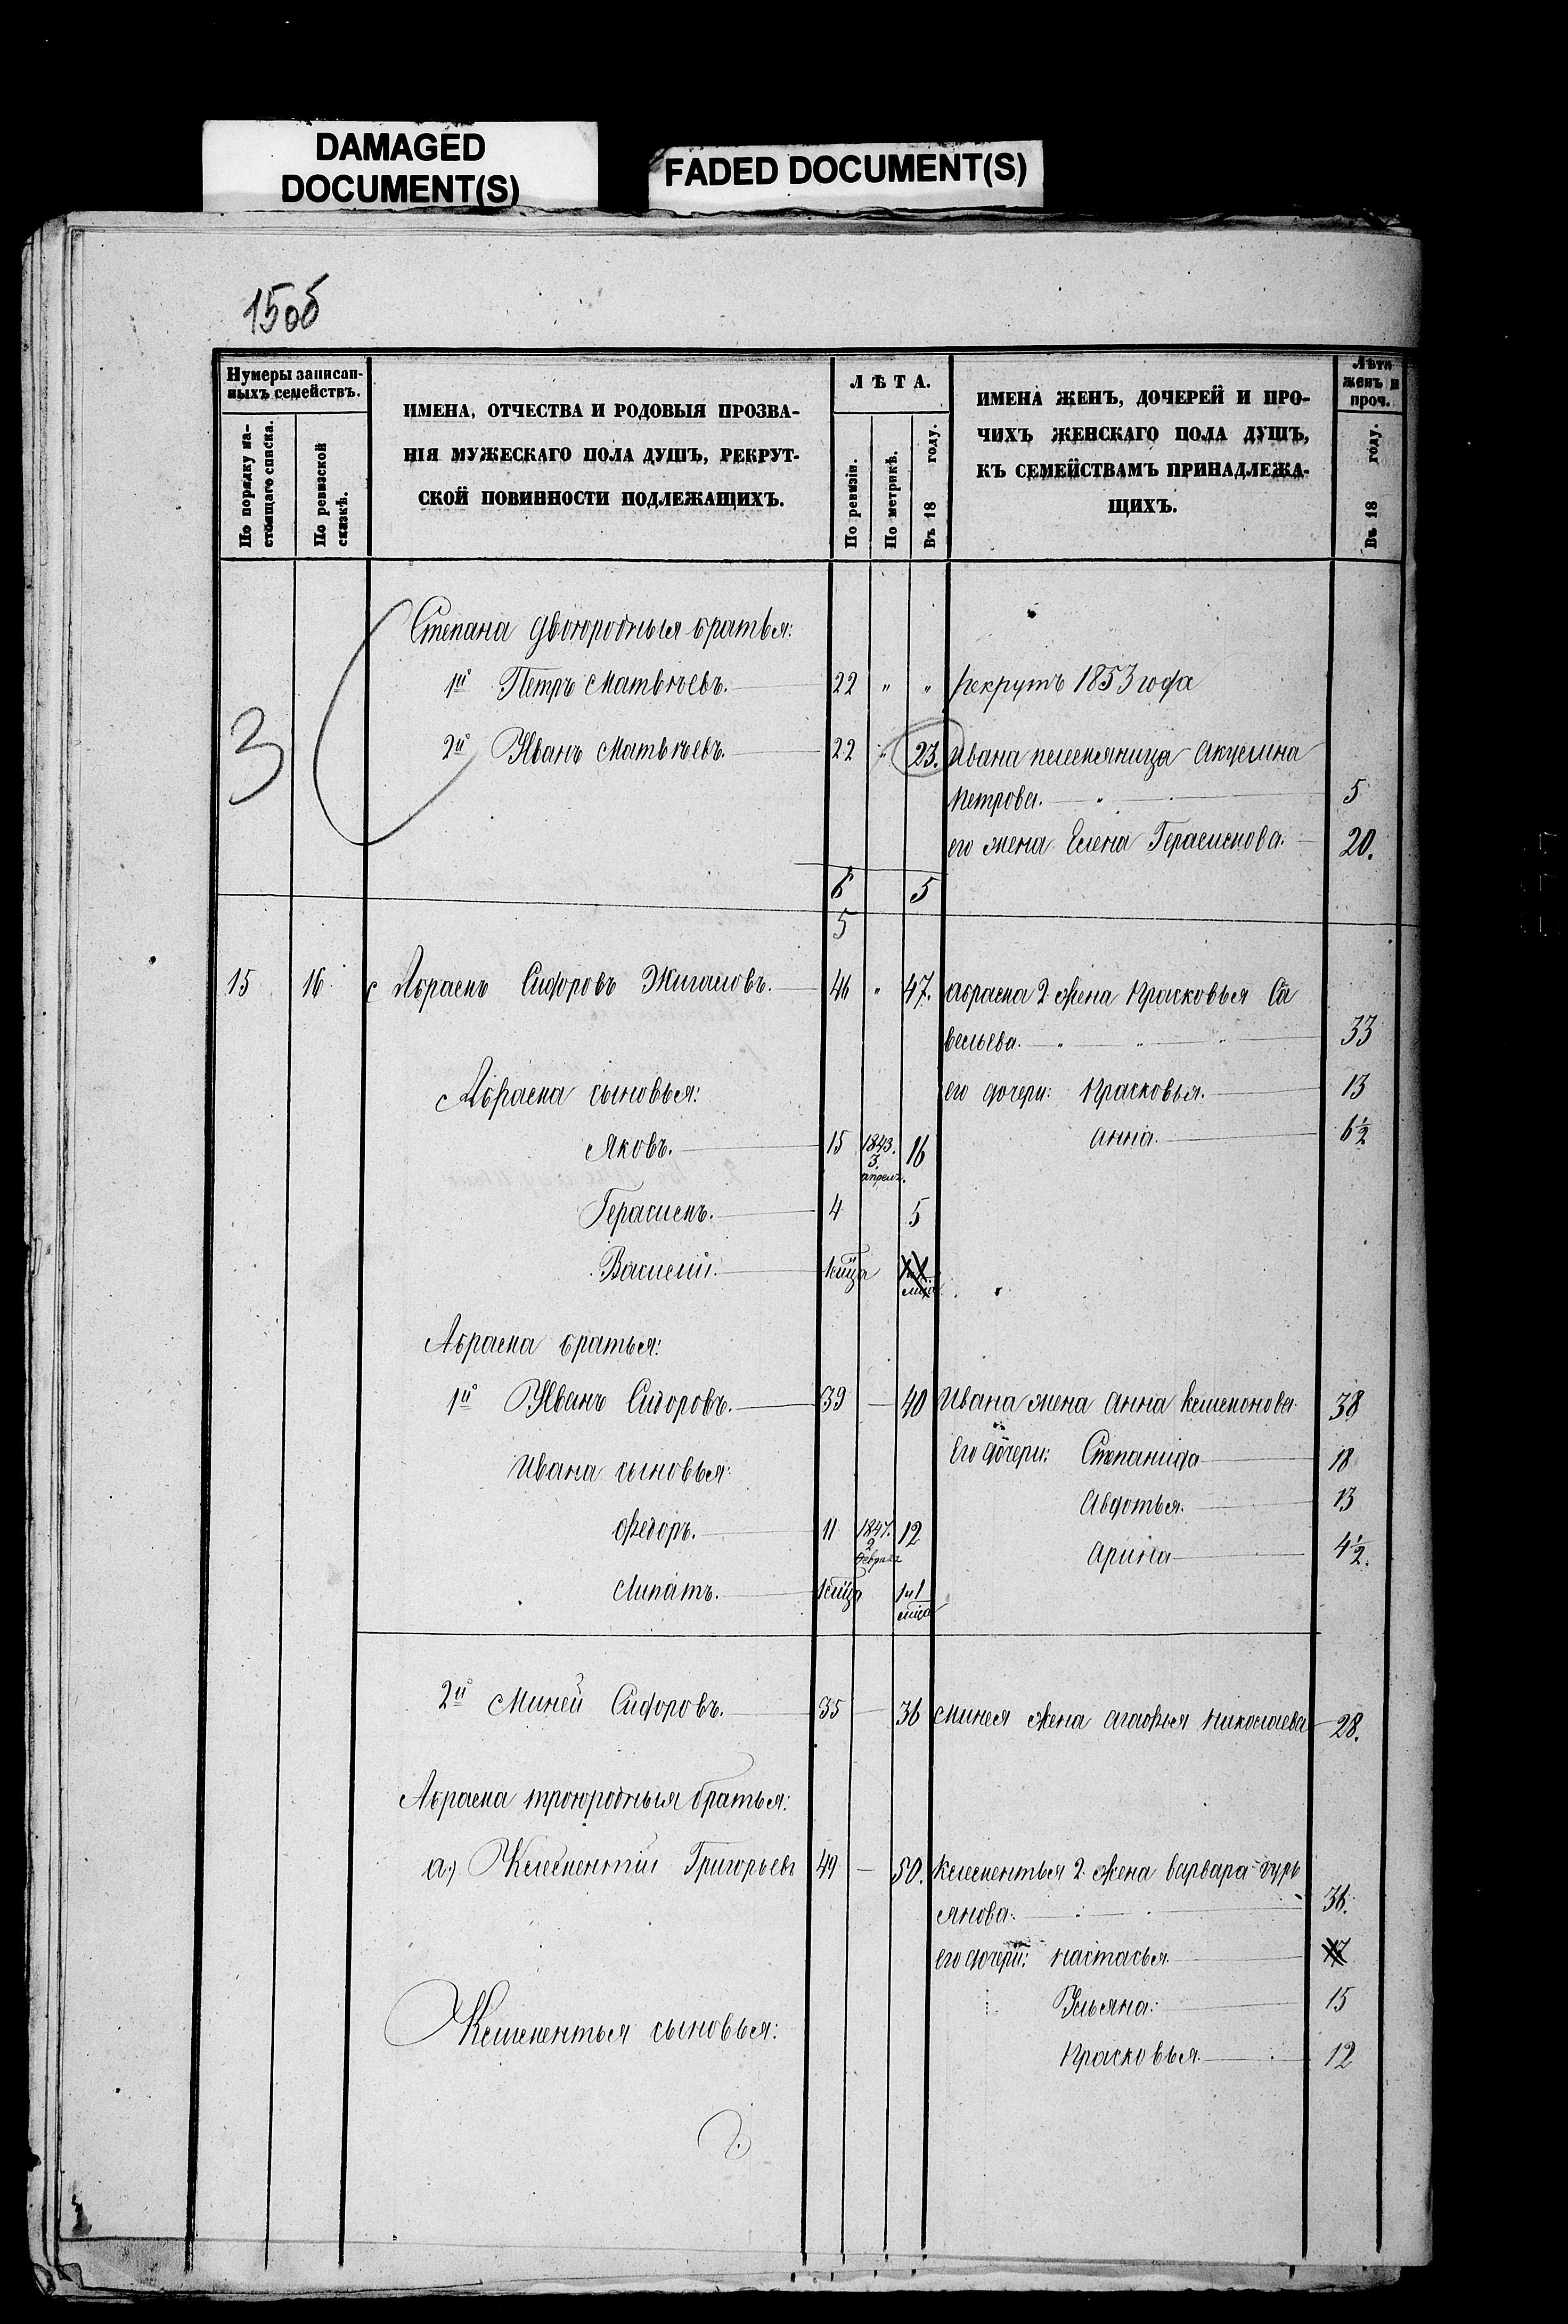 DAMAGED
DOCUMENT(S)
FADED DOCUMENT(S)
15об
Нумеры записан-
ныхъ семействъ.
По порядку на-
стоящаго списка.
По ревизской
сказкѣ.
ИМЕНА, ОТЧЕСТВА И РОДОВЫЯ ПРОЗВА-
НІЯ МУЖЕСКАГО ПОЛА ДУШЪ, РЕКРУТ-
СКОЙ ПОВИННОСТИ ПОДЛЕЖАЩИХЪ.
ЛѢТА.
По ревизіи.
По метрикѣ.
Въ 18 году.
ИМЕНА ЖЕНЪ, ДОЧЕРЕЙ И ПРО-
ЧИХЪ ЖЕНСКАГО ПОЛА ДУШЪ,
КЪ СЕМЕЙСТВАМЪ ПРИНАДЛЕЖА-
ЩИХЪ.
Лѣта
женъ и
проч.
Въ 18 году.
Степана двоюродныя братья:
1й Петръ Матвѣевъ. 22 " " рекрутъ 1853 года
3
2й Иванъ Матвѣевъ. 22 " 23. Ивана племяница Акулина
Петрова. " 5
его жена Елена Герасимова. 20.
6 5
5
15 16 Абрамъ Сидоровъ Жигаловъ. 46 " 47. Абрама 2 жена Прасковья Са
вельева. " " " 33
Абрама сыновья: его дочери: Прасковья. 13
Яковъ. 15 1843. 3. апрель. 16 Анна. 6½
Герасимъ. 4 5
Василій. 1 мѣца
Абрама братья:
1й Иванъ Сидоровъ. 39 — 40 Ивана жена Анна 38
Ивана сыновья: Его дочери: Степанида 18
Авдотья. 13
Федоръ. 11 1847. 2 февраля 12 Арина 4½.
Липатъ. 1 мѣца 1 и 1 мѣца
2й Миней Сидоровъ. 35 — 36 Минея жена Агафья Николаева 28.
Абрама троюродныя братья:
а) Климентій Григорьевъ 49 — 50. Климентья 2 жена Варвара Гурь
янова. 36.
его дочери: Настасья. 17
Климентья сыновья: Ульяна. 15
Прасковья. 12